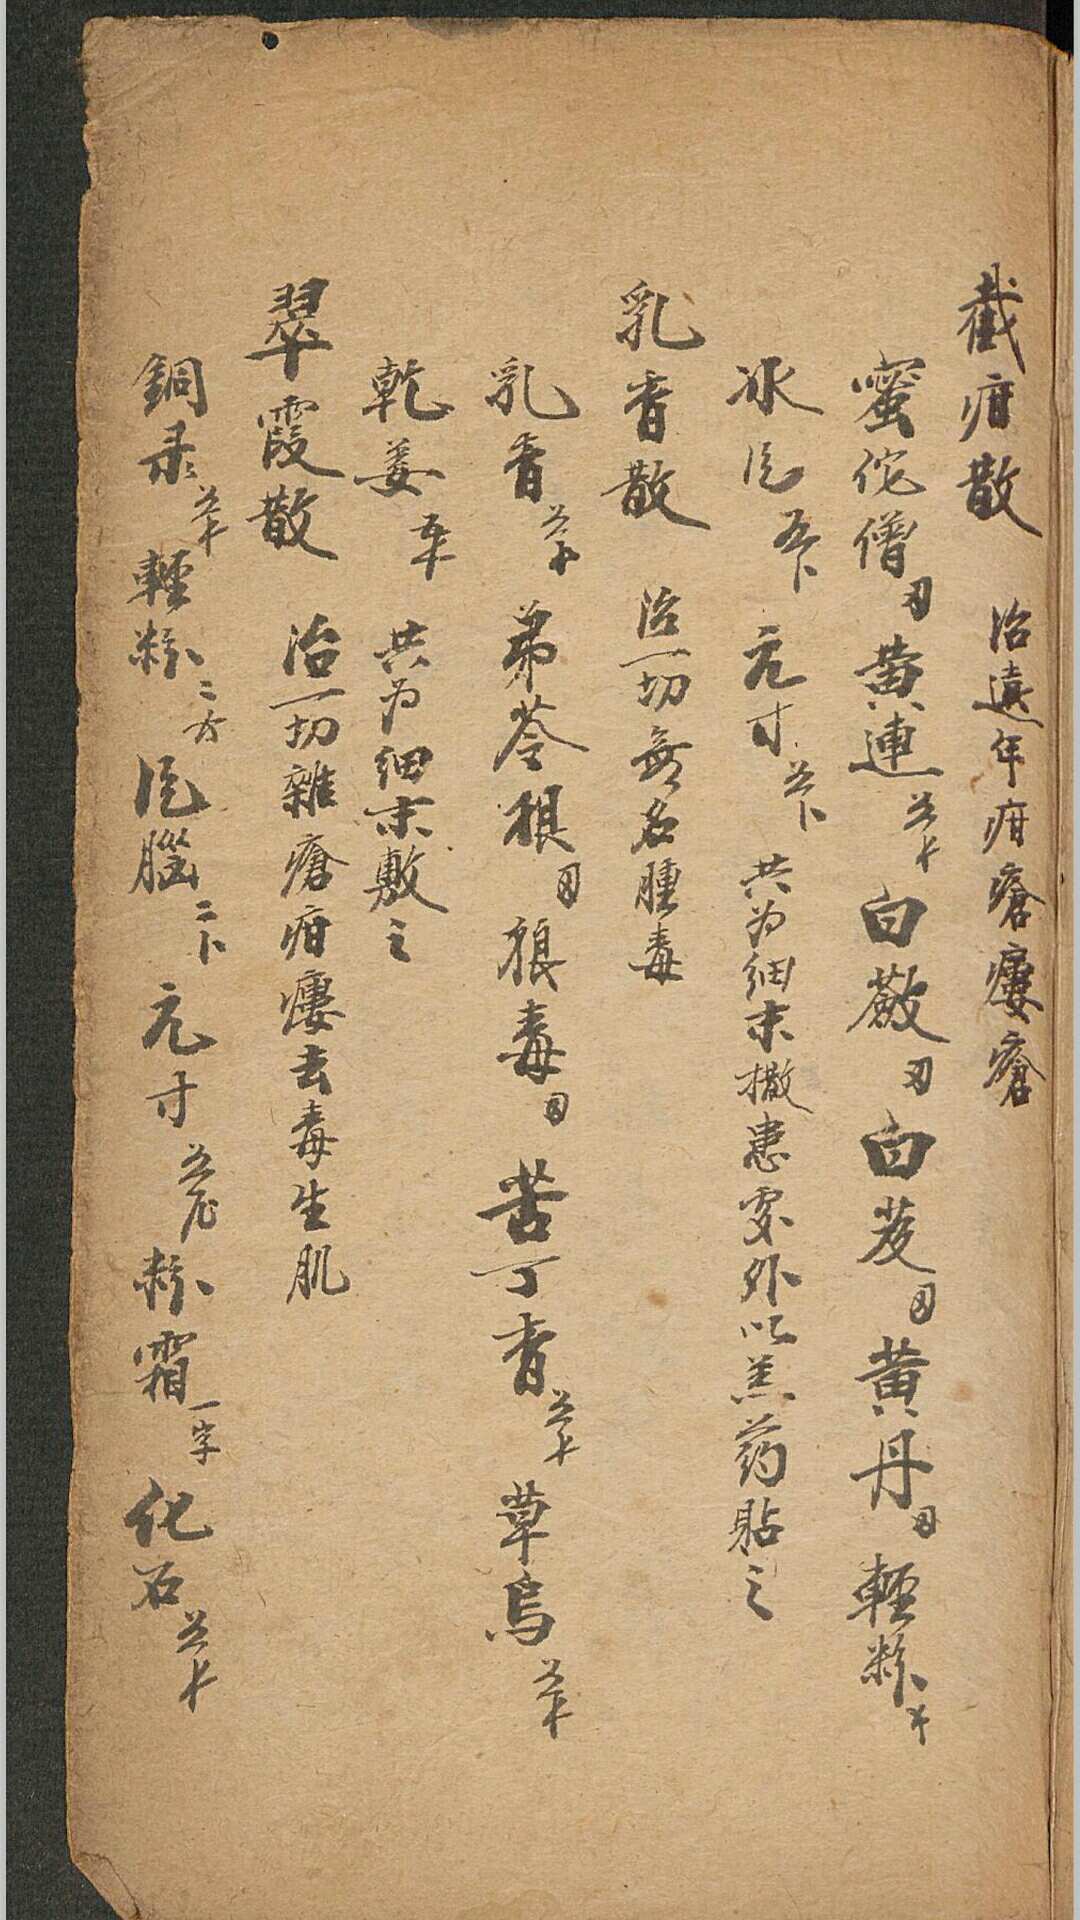 截疳散 治遠年疳瘡瘻瘡
蜜佗僧 黃連 白蔹 白芨 黃丹 輕粉
冰片 元寸 共为細末撒患處外以羔药貼之
乳香散 治一切無名腫毒
乳香 弟苓根 狼毒 苦丁香 草烏
乾姜 共为細末敷之
翠霞散 治一切雜瘡疳瘻去毒生肌
銅录 輕粉 二方 片腦 二卜 元寸 粉霜 一字 化石